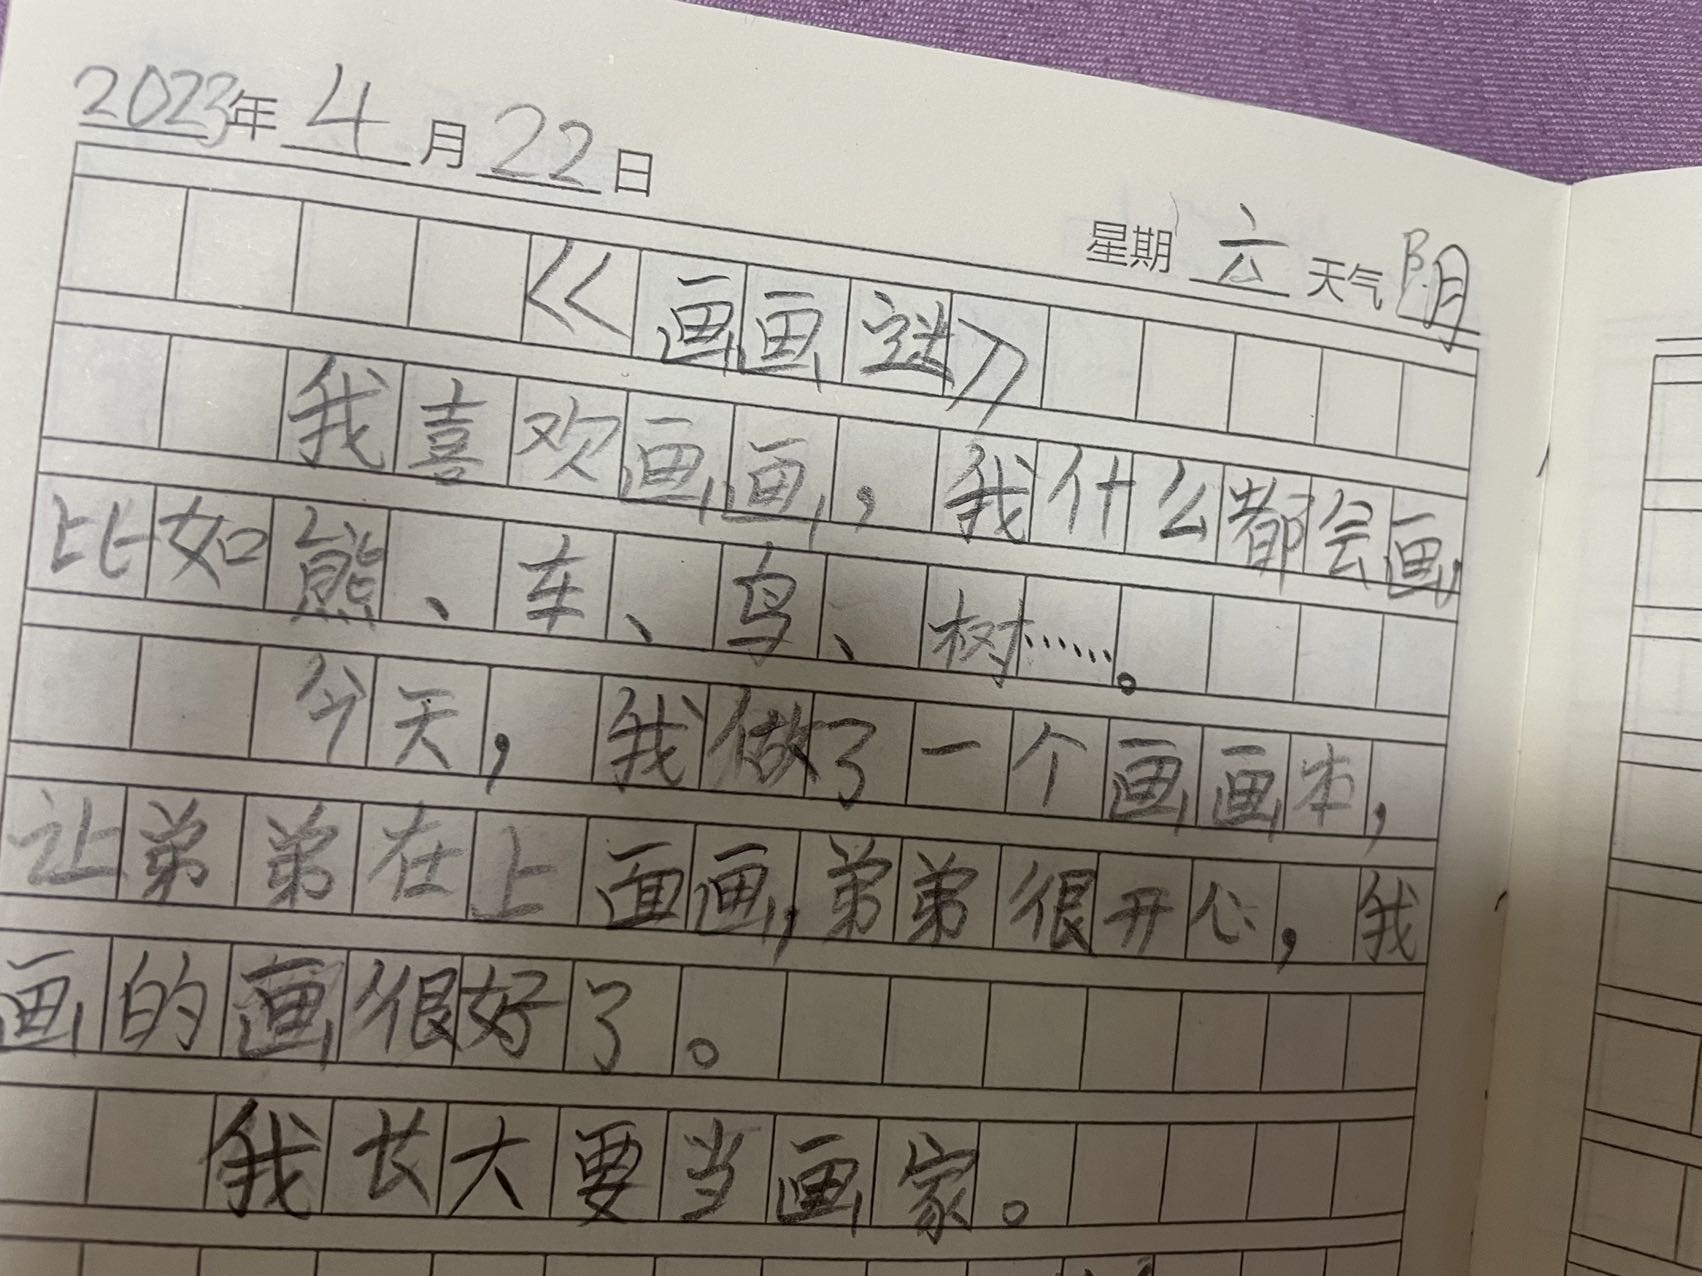 2023年4月22日
星期六天气阴
《画画谜》
我喜欢画画，我什么都会画
比如熊、车、鸟、树……。
今天，我做了一个画画本，
让弟弟在上面画，弟弟很开心，我
画的画很好了。
我长大要当画家。